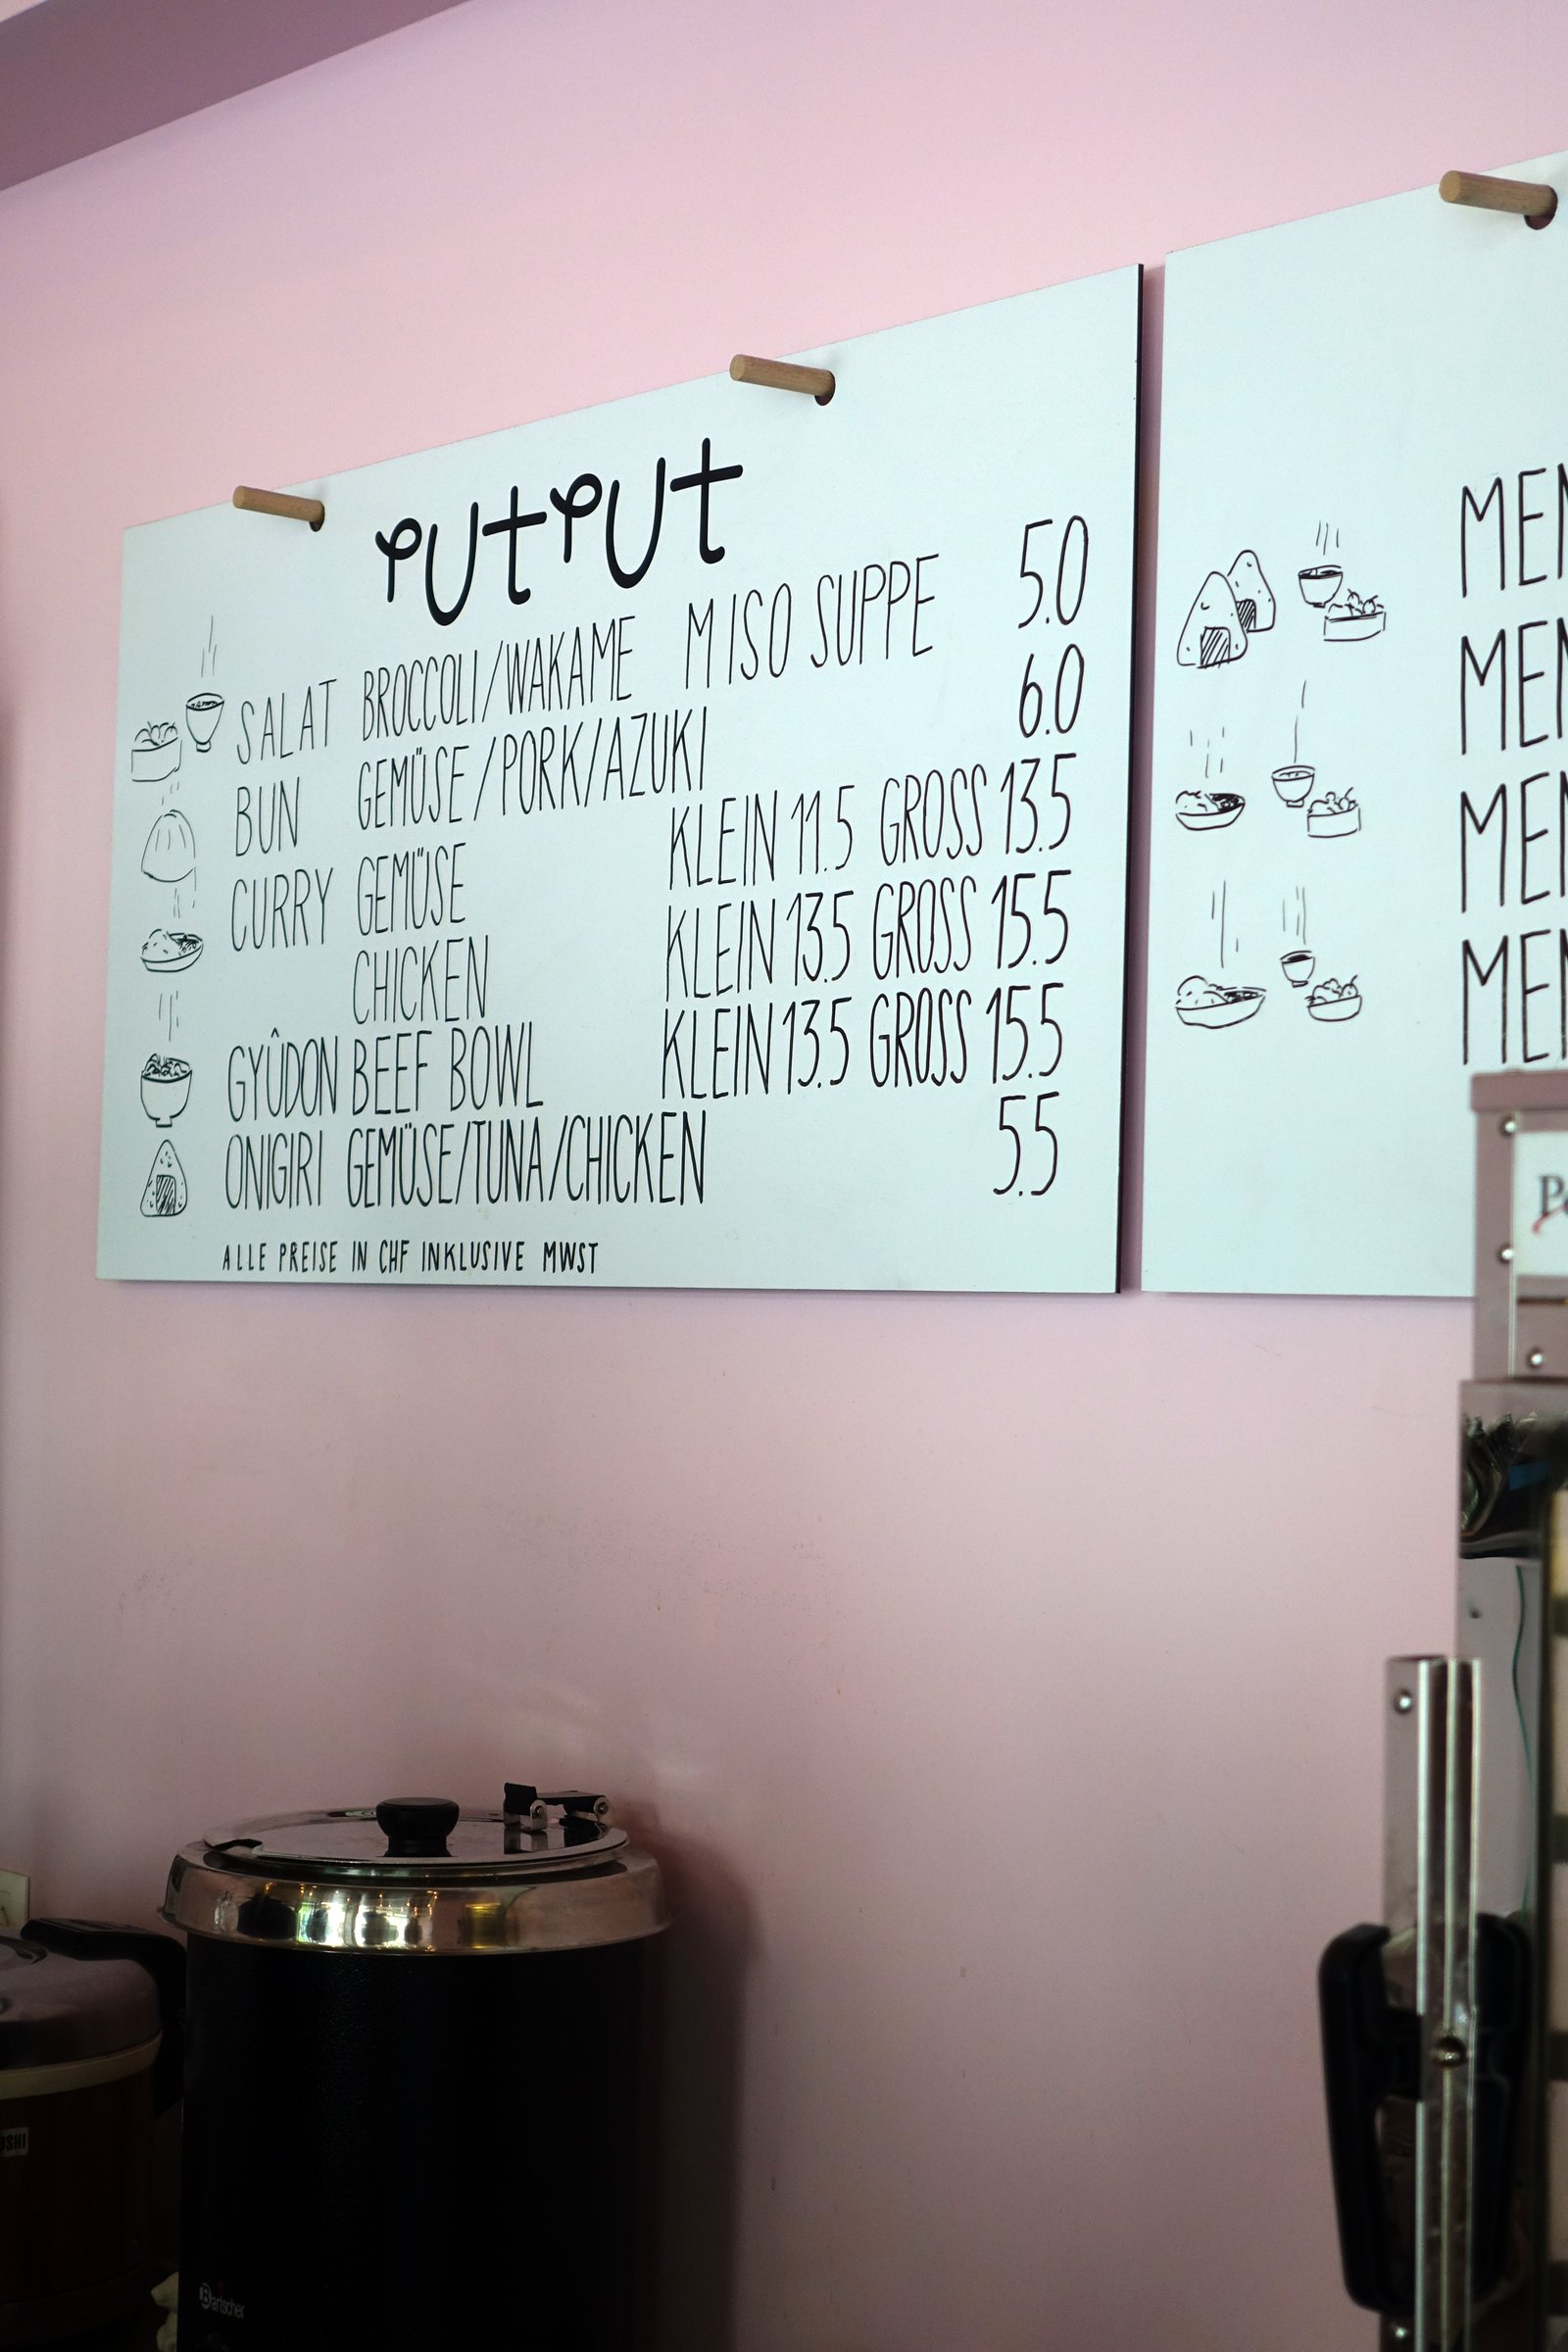 PUTPUT
SALAT BROCCOLI/WAKAME MISO SUPPE 5.0
BUN GEMÜSE/PORK/AZUKI 6.0
CURRY GEMÜSE KLEIN 11.5 GROSS 13.5
CHICKEN KLEIN 13.5 GROSS 15.5
GYÛDON BEEF BOWL KLEIN 13.5 GROSS 15.5
ONIGIRI GEMÜSE/TUNA/CHICKEN 5.5
ALLE PREISE IN CHF INKLUSIVE MWST
Bartscher